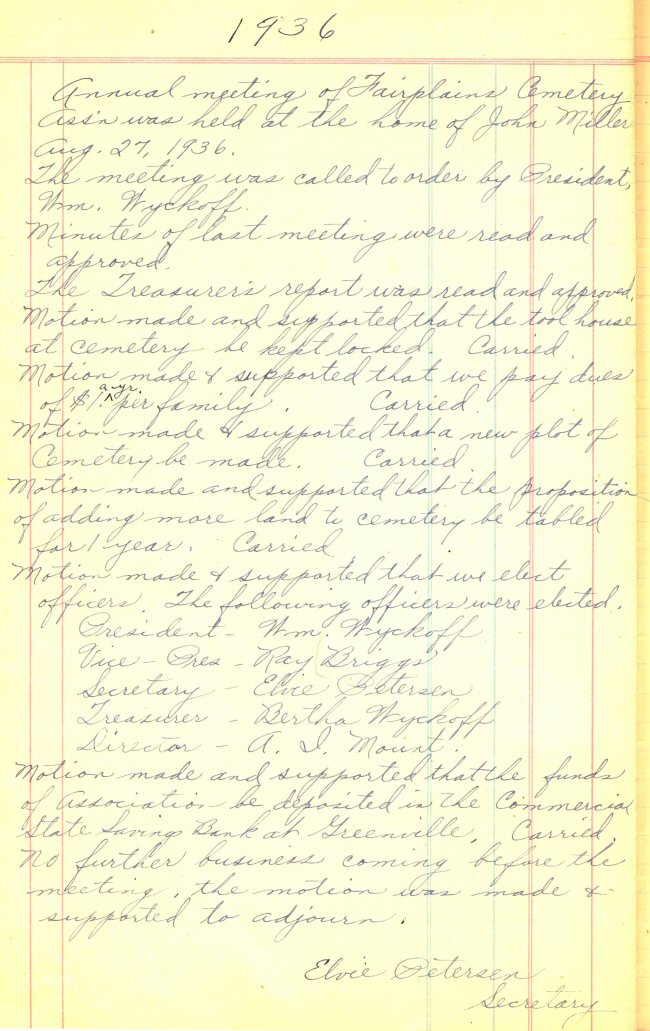 1936
Annual meeting of Fairplains Cemetery
Ass'n was held at the home of John Miller
Aug. 27, 1936.
The meeting was called to order by President,
Wm. Wyckoff.
Minutes of last meeting were read and
approved.
The Treasurer's report was read and approved.
Motion made and supported that the tool house
at cemetery be kept locked. Carried.
Motion made & supported that we pay dues
a yr.
of $1. ^ per family. Carried.
Motion made & supported that a new plot of
Cemetery be made. Carried
Motion made and supported that the proposition
of adding more land to cemetery be tabled
for 1 year. Carried.
Motion made & supported that we elect
officers. The following officers were elected.
President - Wm. Wyckoff
Vice - Pres - Ray Briggs
Secretary - Elvie Petersen
Treasurer - Bertha Wyckoff
Director - A. I. Mount.
Motion made and supported that the funds
of Association be deposited in The Commercial
State Savings Bank at Greenville. Carried.
No further business coming before the
meeting, the motion was made &
supported to adjourn.
Elvie Petersen
Secretary